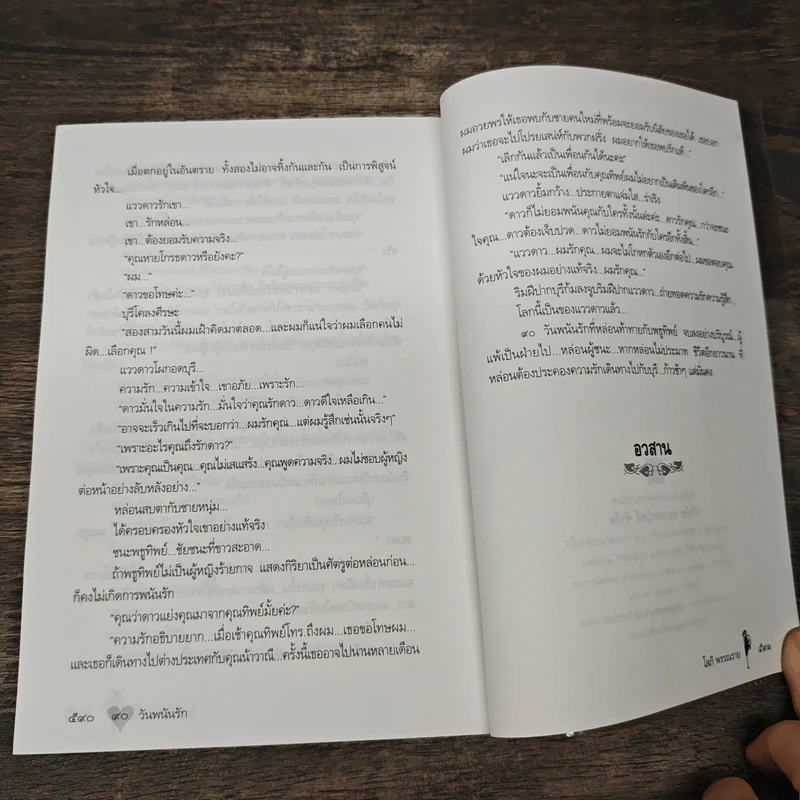 เมื่อตกอยู่ในอันตราย ทั้งสองไม่อาจทิ้งกันและกัน เป็นการพิสูจน์
หัวใจ...
แววดาวรักเขา...
เขา...รักหล่อน...
เขา...ต้องยอมรับความจริง...
“คุณหายโกรธดาวหรือยังคะ?”
“ผม...”
“ดาวขอโทษค่ะ...”
บุรีโคลงศีรษะ
“สองสามวันนี้ผมเฝ้าคิดมาตลอด...และผมก็แน่ใจว่าผมเลือกคนไม่
ผิด...เลือกคุณ !”
แววดาวโผกอดบุรี...
ความรัก...ความเข้าใจ...เขาอภัย...เพราะรัก...
“ดาวมั่นใจในความรัก...มั่นใจว่าคุณรักดาว...ดาวดีใจเหลือเกิน...”
“อาจจะเร็วเกินไปที่จะบอกว่า...ผมรักคุณ...แต่ผมรู้สึกเช่นนั้นจริงๆ”
“เพราะอะไรคุณถึงรักดาว?”
“เพราะคุณเป็นคุณ...คุณไม่เสแสร้ง...คุณพูดความจริง...ผมไม่ชอบผู้หญิง
ต่อหน้าอย่างลับหลังอย่าง...”
หล่อนสบตากับชายหนุ่ม...
ได้ครอบครองหัวใจเขาอย่างแท้จริง
ชนะพธูทิพย์...ชัยชนะที่ขาวสะอาด...
ถ้าพธูทิพย์ไม่เป็นผู้หญิงร้ายกาจ แสดงกิริยาเป็นศัตรูต่อหล่อนก่อน...
ก็คงไม่เกิดการพนันรัก
“คุณว่าดาวแย่งคุณมาจากคุณทิพย์มั้ยคะ?”
“ความรักอธิบายยาก...เมื่อเช้าคุณทิพย์โทร.ถึงผม...เธอขอโทษผม...
และเธอก็เดินทางไปต่างประเทศกับคุณน้าวาณี...ครั้งนี้เธออาจไปนานหลายเดือน
๕๙๐ ๙๐ วันพนันรัก
ผมอวยพรให้เธอพบกับชายคนใหม่ที่พร้อมจะยอมรับนิสัยของเธอได้ เธอบอก
ผมว่าเธอจะไปโปรยเสน่ห์กับพวกฝรั่ง ผมอยากให้เธอพบรักแท้...”
“เลิกกันแล้วเป็นเพื่อนกันได้นะคะ”
“แน่ใจนะจะเป็นเพื่อนกับคุณทิพย์ผมไม่อยากเป็นเดิมพันของใครอีก...”
แววดาวยิ้มกว้าง...ประกายตาแจ่มใส...ร่าเริง
“ดาวก็ไม่ยอมพนันคุณกับใครทั้งนั้นล่ะค่ะ...ดาวรักคุณ...กว่าจะชนะ
ใจคุณ...ดาวต้องเจ็บปวด...ดาวไม่ยอมพนันรักกับใครอีกทั้งสิ้น...”
“แววดาว...ผมรักคุณ...ผมจะไม่โกหกตัวเองอีกต่อไป...ผมขอตอบคุณ
ด้วยหัวใจของผมอย่างแท้จริง...ผมรักคุณ...”
ริมฝีปากบุรีก้มลงจูบริมฝีปากแววดาว...ถ่ายทอดความรักความรู้สึก...
โลกนี้เป็นของแววดาวแล้ว...
๙๐ วันพนันรักที่หล่อนท้าทายกับพธูทิพย์ จบลงอย่างบริบูรณ์...ผู้
แพ้เป็นฝ่ายไป...หล่อนผู้ชนะ...หากหล่อนไม่ประมาท ชีวิตอีกยาวนาน ที่
หล่อนต้องประคองความรักเดินทางไปกับบุรี...ก้าวช้าๆ แต่มั่นคง
อวสาน
โสภี พรรณราย ๕๙๑